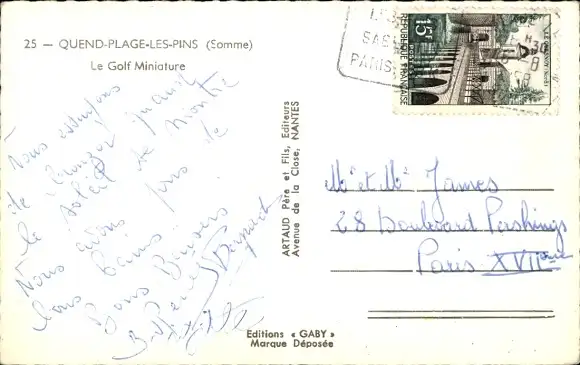 25 — QUEND-PLAGE-LES-PINS (Somme)
Le Golf Miniature
Nous essayons
de bronzer quand
le soleil se montre
Nous avons pris de
bons bains.
Bons Baisers
ARTAUD Père et Fils, Editeurs
Avenue de la Close, NANTES
REPUBLIQUE FRANÇAISE
15F
POSTES
PARIS
Mr et Me James
28 Boulevard Pershing
Paris XVIIème
Editions « GABY »
Marque Déposée